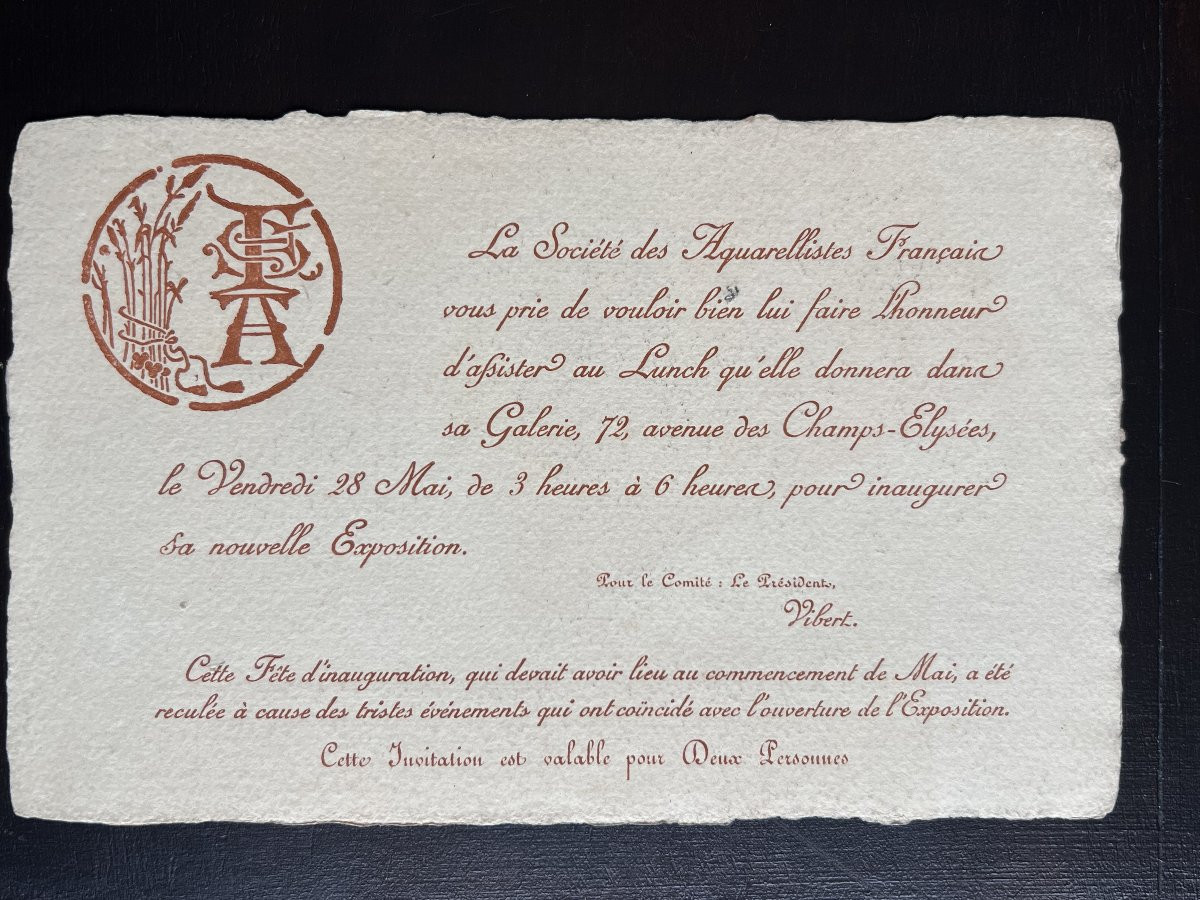 SFA
La Société des Aquarellistes Français
vous prie de vouloir bien lui faire l'honneur
d'assister au Lunch qu'elle donnera dans
sa Galerie, 72, avenue des Champs-Elysées,
le Vendredi 28 Mai, de 3 heures à 6 heures, pour inaugurer
sa nouvelle Exposition.
Pour le Comité : Le Président,
Vibert.
Cette Fête d'inauguration, qui devait avoir lieu au commencement de Mai, a été
reculée à cause des tristes événements qui ont coïncidé avec l'ouverture de l'Exposition.
Cette Invitation est valable pour Deux Personnes